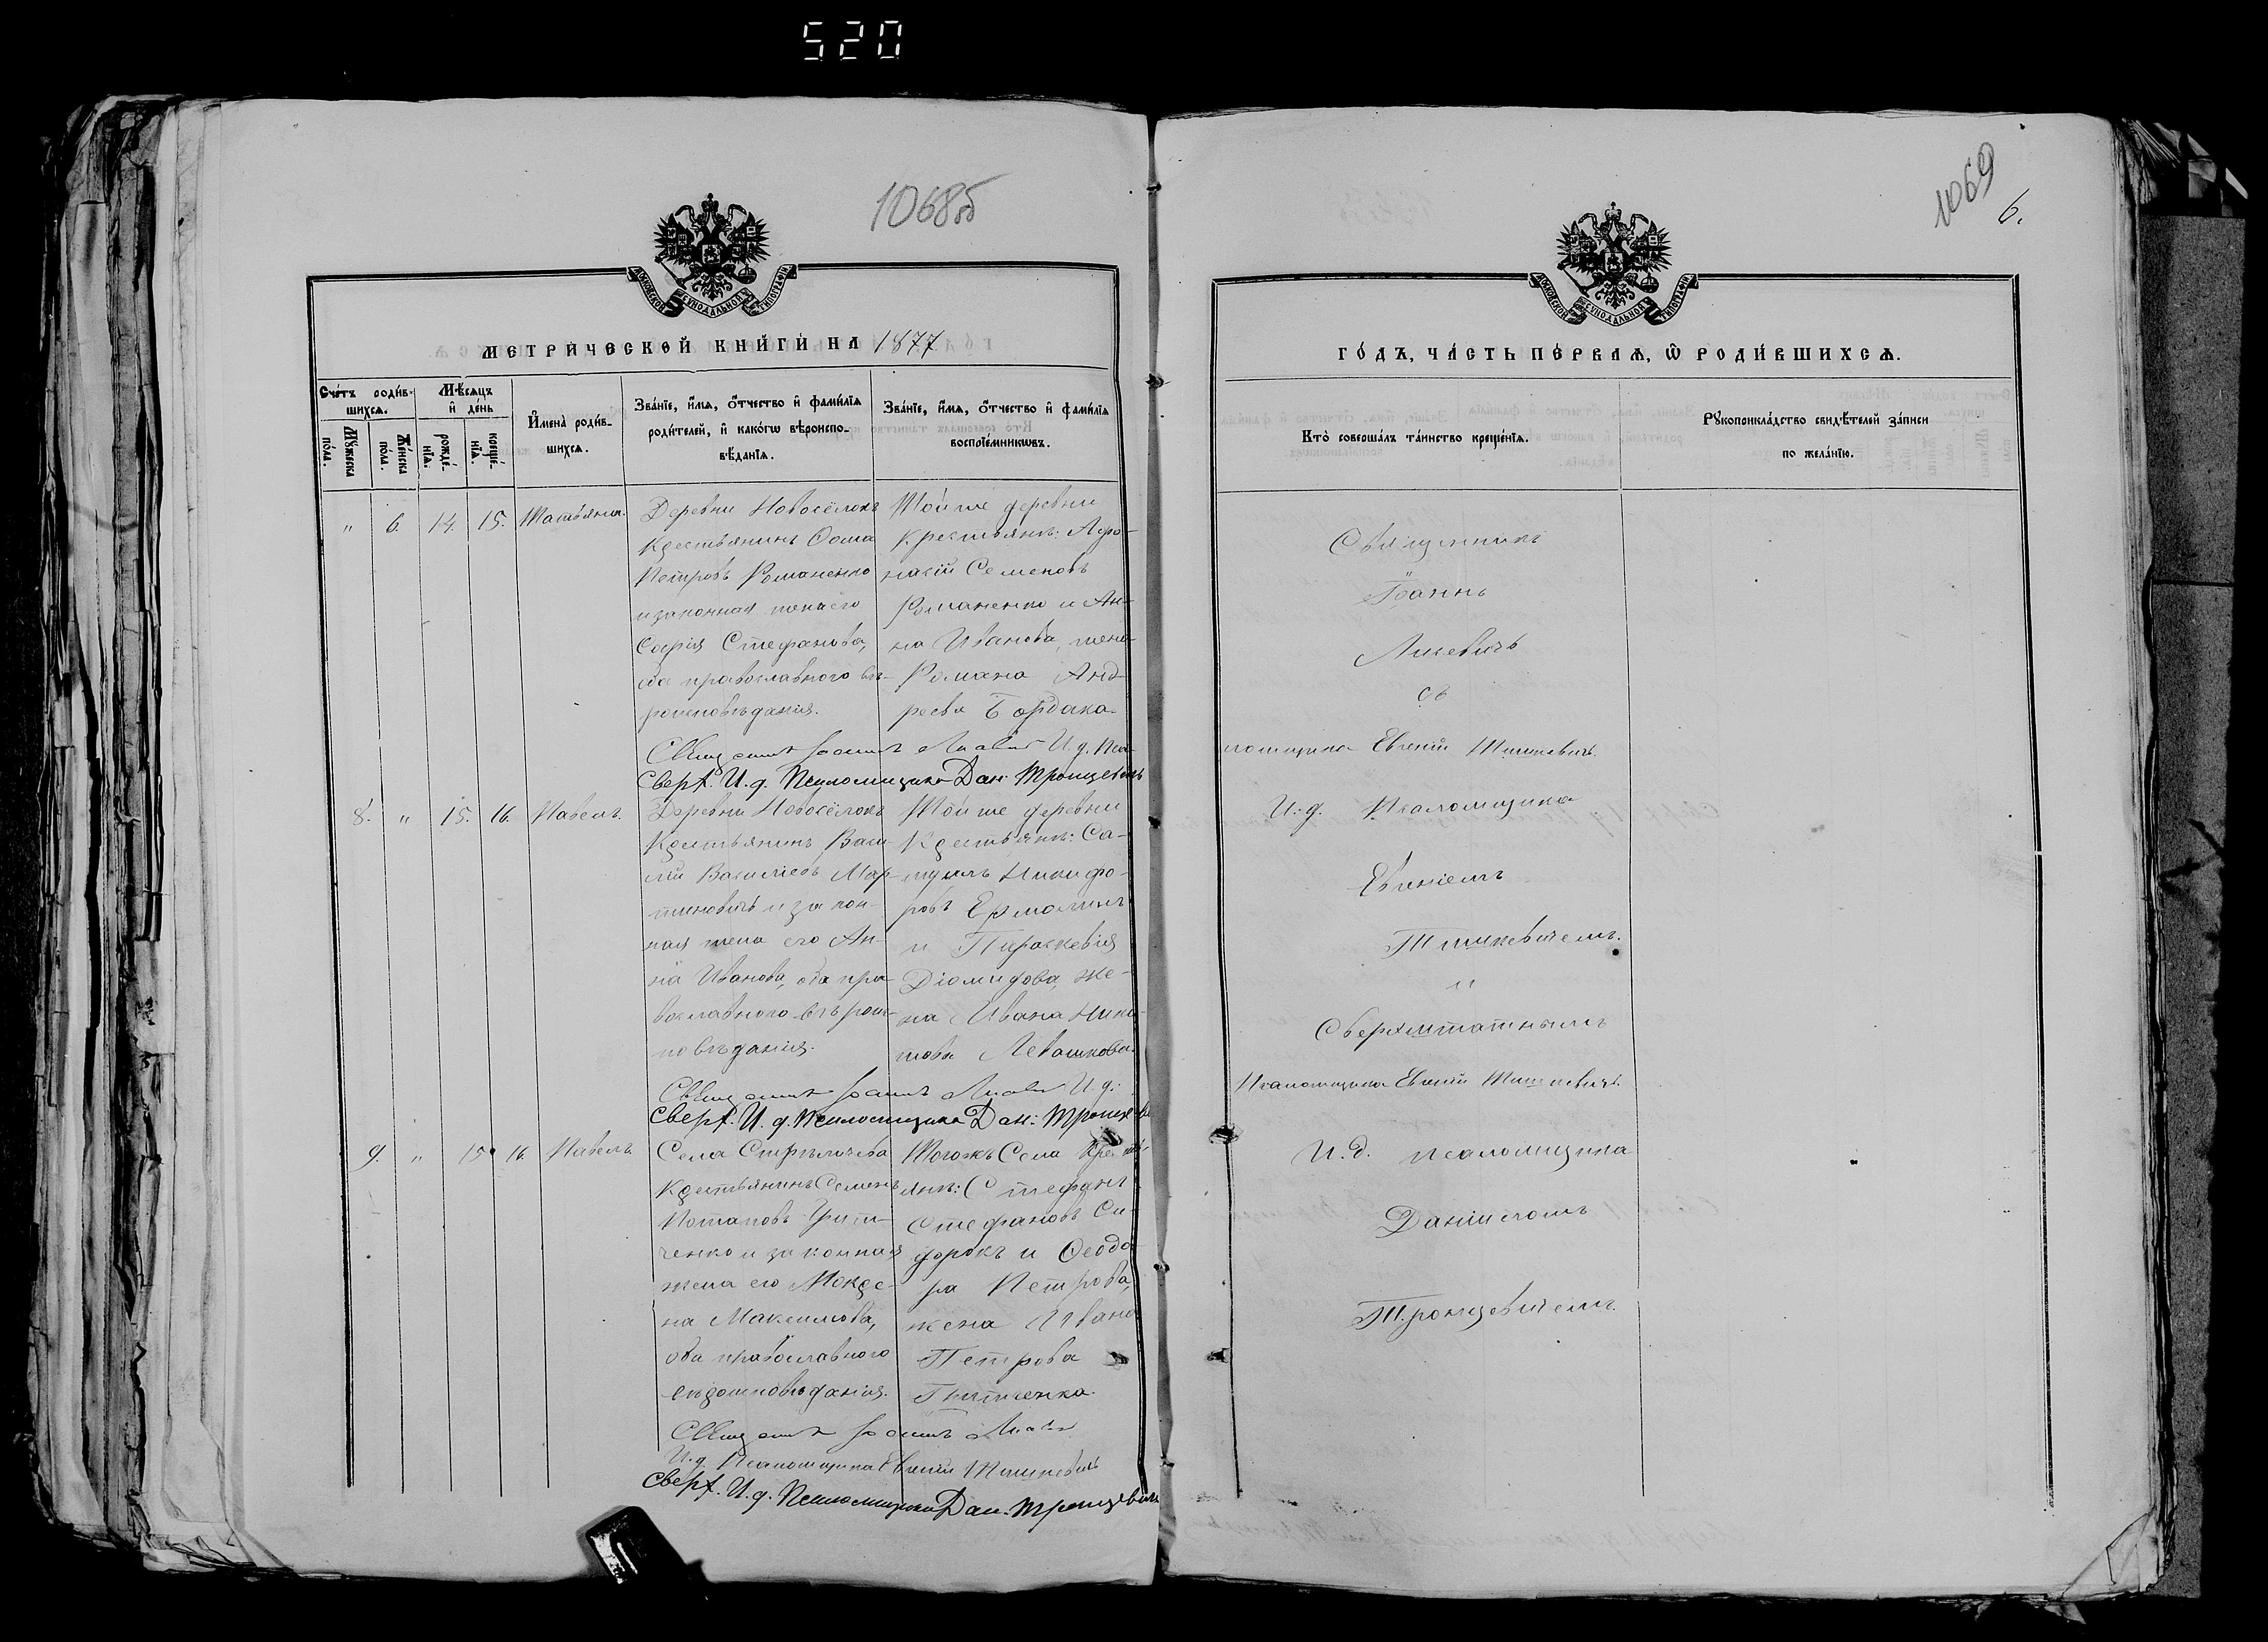 520
1068об
МОСКОВСКОЙ СУНОДАЛЬНОЙ ТИПОГРАФІИ
МЕТРИ́ЧЕСКОЙ КНИ́ГИ НА 1877
Сче́тъ роди́в-
шихсѧ.
Мѣ́сѧцъ
и҆ де́нь
И҆мена̀ роди́в-
шихсѧ.
Зва́нїе, и҆́мѧ, ѻ҆́тчество и҆ фами́лїѧ
роди́телей, и҆ како́гѡ вѣроиспо-
вѣ́данїѧ.
Зва́нїе, и҆́мѧ, ѻ҆́тчество и҆ фами́лїѧ
воспрїе́мникѡвъ.
Мꙋ́жеска
по́ла.
Же́нска
по́ла.
рожде́-
нїѧ.
креще́-
нїѧ.
" 6. 14. 15. Татьяна.
Деревни Новосёлокъ
Крестьянинъ Ѳома
Петровъ Романенко
и законная жена его
Софія Стефанова,
оба православного вѣ-
роисповѣданія.
Той же деревни
Крестьян: Аѳа-
насій Семеновъ
Романенко и Ан-
на Иванова, жена
Романа Анд-
реева Бордака.
Священникъ Іоаннъ И. д. Пса-
Сверх. И. д. Псаломщика Дан: Тронцевичъ
8. " 15. 16. Павелъ.
Деревни Новосёлокъ
Крестьянинъ Васи-
лій Василіевъ Мар-
тиновичъ и закон-
ная жена его Ан-
на Иванова, оба пра-
вославного вѣроис-
повѣданія.
Той же деревни
Крестьян: Са-
муилъ Никифо-
ровъ Ермолинъ
и Параскевія
Діомидова, же-
на Ивана Ники-
това Левашкова.
Священникъ Іоаннъ И. д:
Сверх. И. д. Псаломщика Дан: Тронцеви
9. " 15 16. Павелъ
Села Стрѣличева
Крестьянинъ Семенъ
Потаповъ
ченко и законная
жена его
на Максимова,
оба православного
вѣроисповѣданія.
Тогожъ Села Крестьян
янъ: Стефанъ
Стефановъ Си-
дорокъ и Ѳеодо
ра Петрова,
жена Ивана
Петрова
Священникъ Іоаннъ
И. д. Псаломщика Евгеній Тишкевичъ
Сверх. И. д. Псаломщика Дан. Тронцевичъ
1069
6.
МОСКОВСКОЙ СУНОДАЛЬНОЙ ТИПОГРАФІИ
ГО́ДЪ, ЧА́СТЬ ПЕ́РВАѦ, Ѡ҆ РОДИ́ВШИХСѦ.
Кто̀ соверша́лъ та́инство креще́нїѧ.
Рꙋкоприкла́дство свидѣ́телей за́писи
по жела́нїю.
Священникъ
Іоаннъ
Лисевичъ
съ
ломщика Евгеній Тишкевичъ
И. д. Псаломщика
Евгеніемъ
Тишкевичемъ.
и
Сверхштатнымъ
Псаломщика Евгеній Тишкевичъ.
И. д. псаломщика
Даніиломъ
Тронцевичемъ.